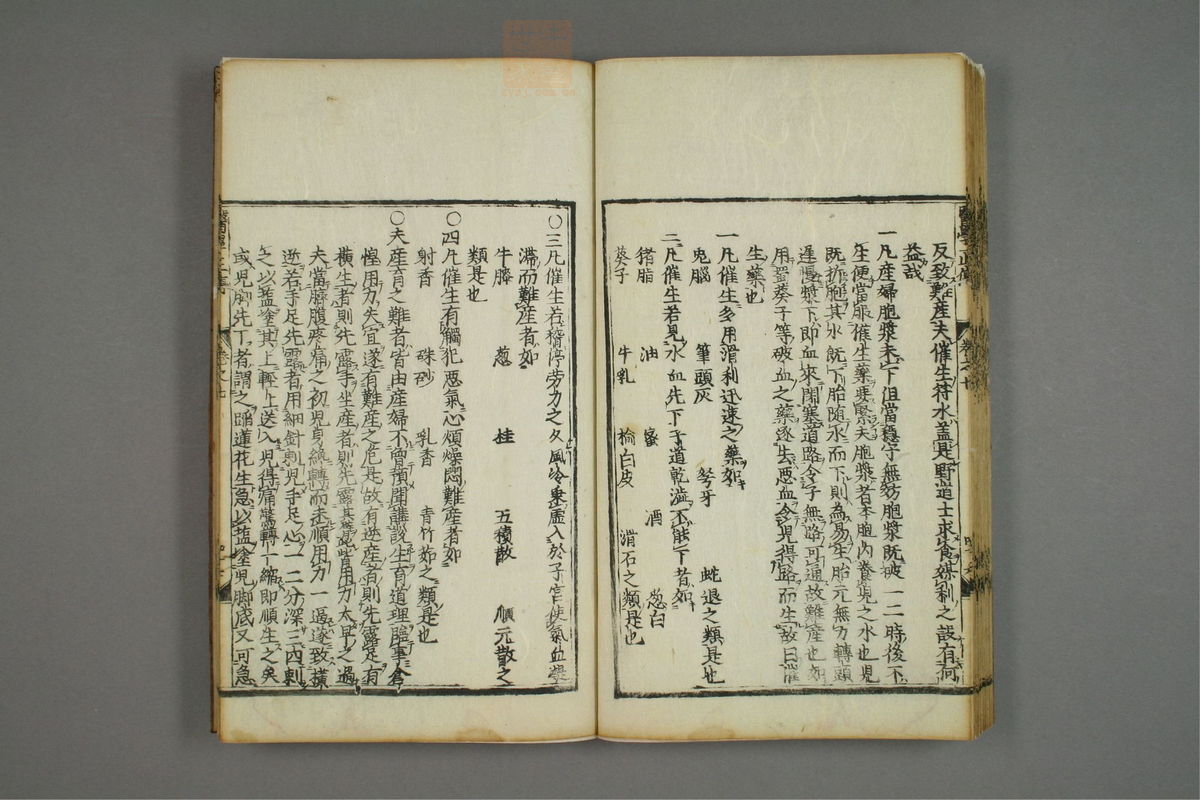 反致難産夫催生符水蓋是野道士求食媒利之設有何
益哉
一凡産婦胞漿未下但當穩守無妨胞漿既破一二時後不
生便當服催生藥要緊夫胞漿者本胞內養兒之水也兒
既折胞其水既下胎隨水而下則為易生胎元無力轉頭
遲慢漿下即血來閉塞道路令子無路可通故難産也如
用蜀葵子等破血之藥逐去惡血令兒得路而生故曰催
生藥也
一凡催生多用滑利迅速之藥如
兎腦 筆頭灰 弩牙 蛇退之類是也
二凡催生若見水血先下子道乾澁不能下者如
猪脂 油 蜜 酒 葱白
葵子 牛乳 榆白皮 滑石之類是也
〇三凡催生若稽停勞力之久風冷乗虛入於子宮使氣血凝
滯而難産者如
牛膝 葱 桂 五積散 順元散之
類是也
〇四凡催生有觸犯惡氣心煩燥悶難産者如
射香 硃砂 乳香 青竹茹之類是也
〇夫産育之難者皆由産婦不曾預聞講說生育道理臨事倉
惶用力失宜遂有難産之厄是故有逆産者則先露足有
橫生者則先露手坐産者則先露其臀此皆用力太早之過
夫當臍腹疼痛之初兒身纔轉而未順用力一逼遂致橫
逆若手足先露者用細針刺兒手足心一二分深三四刺
之以盐塗其上輕上送入兒得痛驚轉一縮即順生之矣
或兒脚先下者謂之踏蓮花生急以盐塗兒脚底又可急